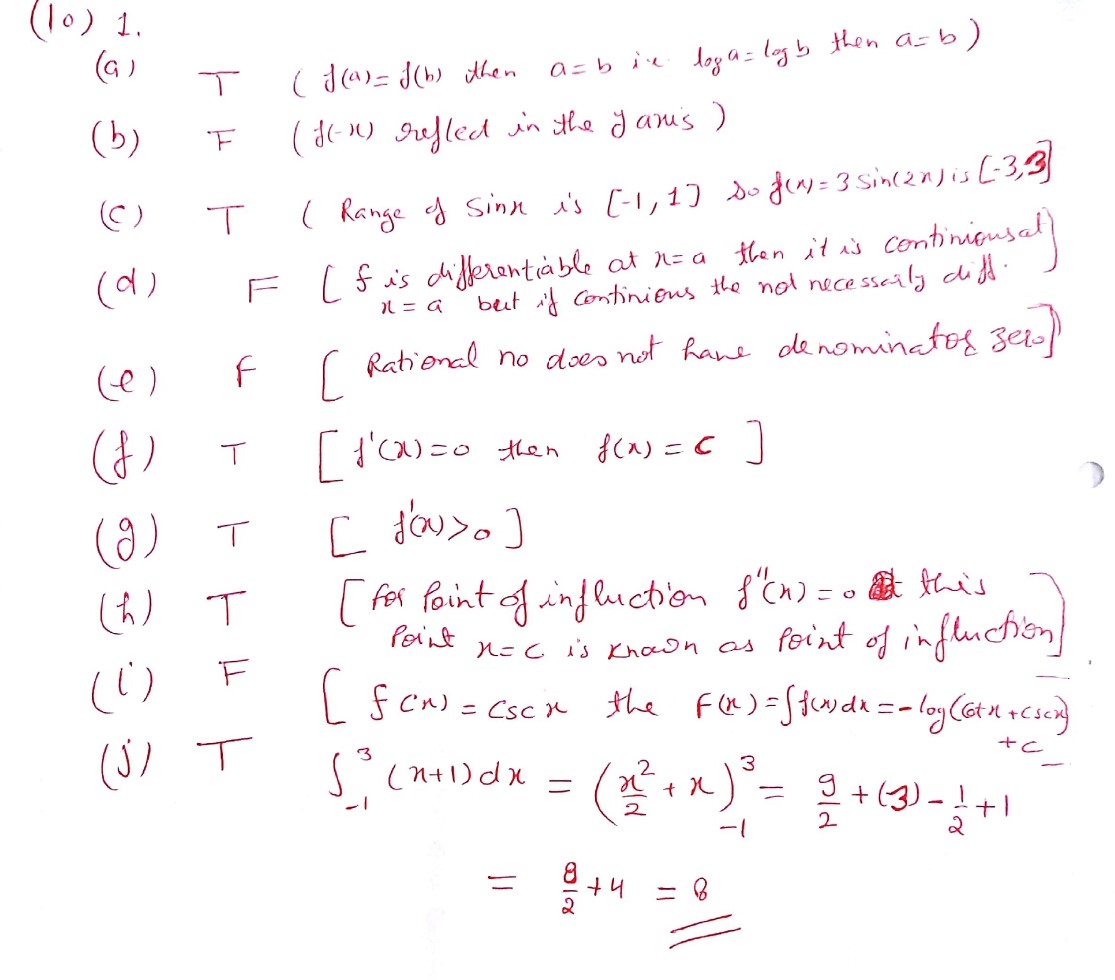 (10) 1.
(a) T ( f(a)= f(b) then a=b i.e. log a = log b then a=b )
(b) F ( f(-x) refled in the y axis )
(c) T ( Range of Sinx is [-1, 1] so f(x) = 3 Sin(2x) is [-3,3]
(d) F [ f is differentiable at x=a then it is continiousat
x = a but if continious the not necesserly diff. ]
(e) f [ Rational no does not have denominator zero]
(f) T [ f'(x)=0 then f(x) = c ]
(g) T [ f'(x)>0 ]
(h) T [ for Point of influction f"(x) = 0 at this
Point x=c is known as Point of influction]
(i) F [ f(x) = csc x the F(x) = ∫f(x)dx = -log(cotx+cscx)
+c
(j) T ∫₋₁³ (x+1)dx = (x²/2 + x)³₋₁ = 9/2 + (3) - 1/2 + 1
= 8/2 + 4 = 8